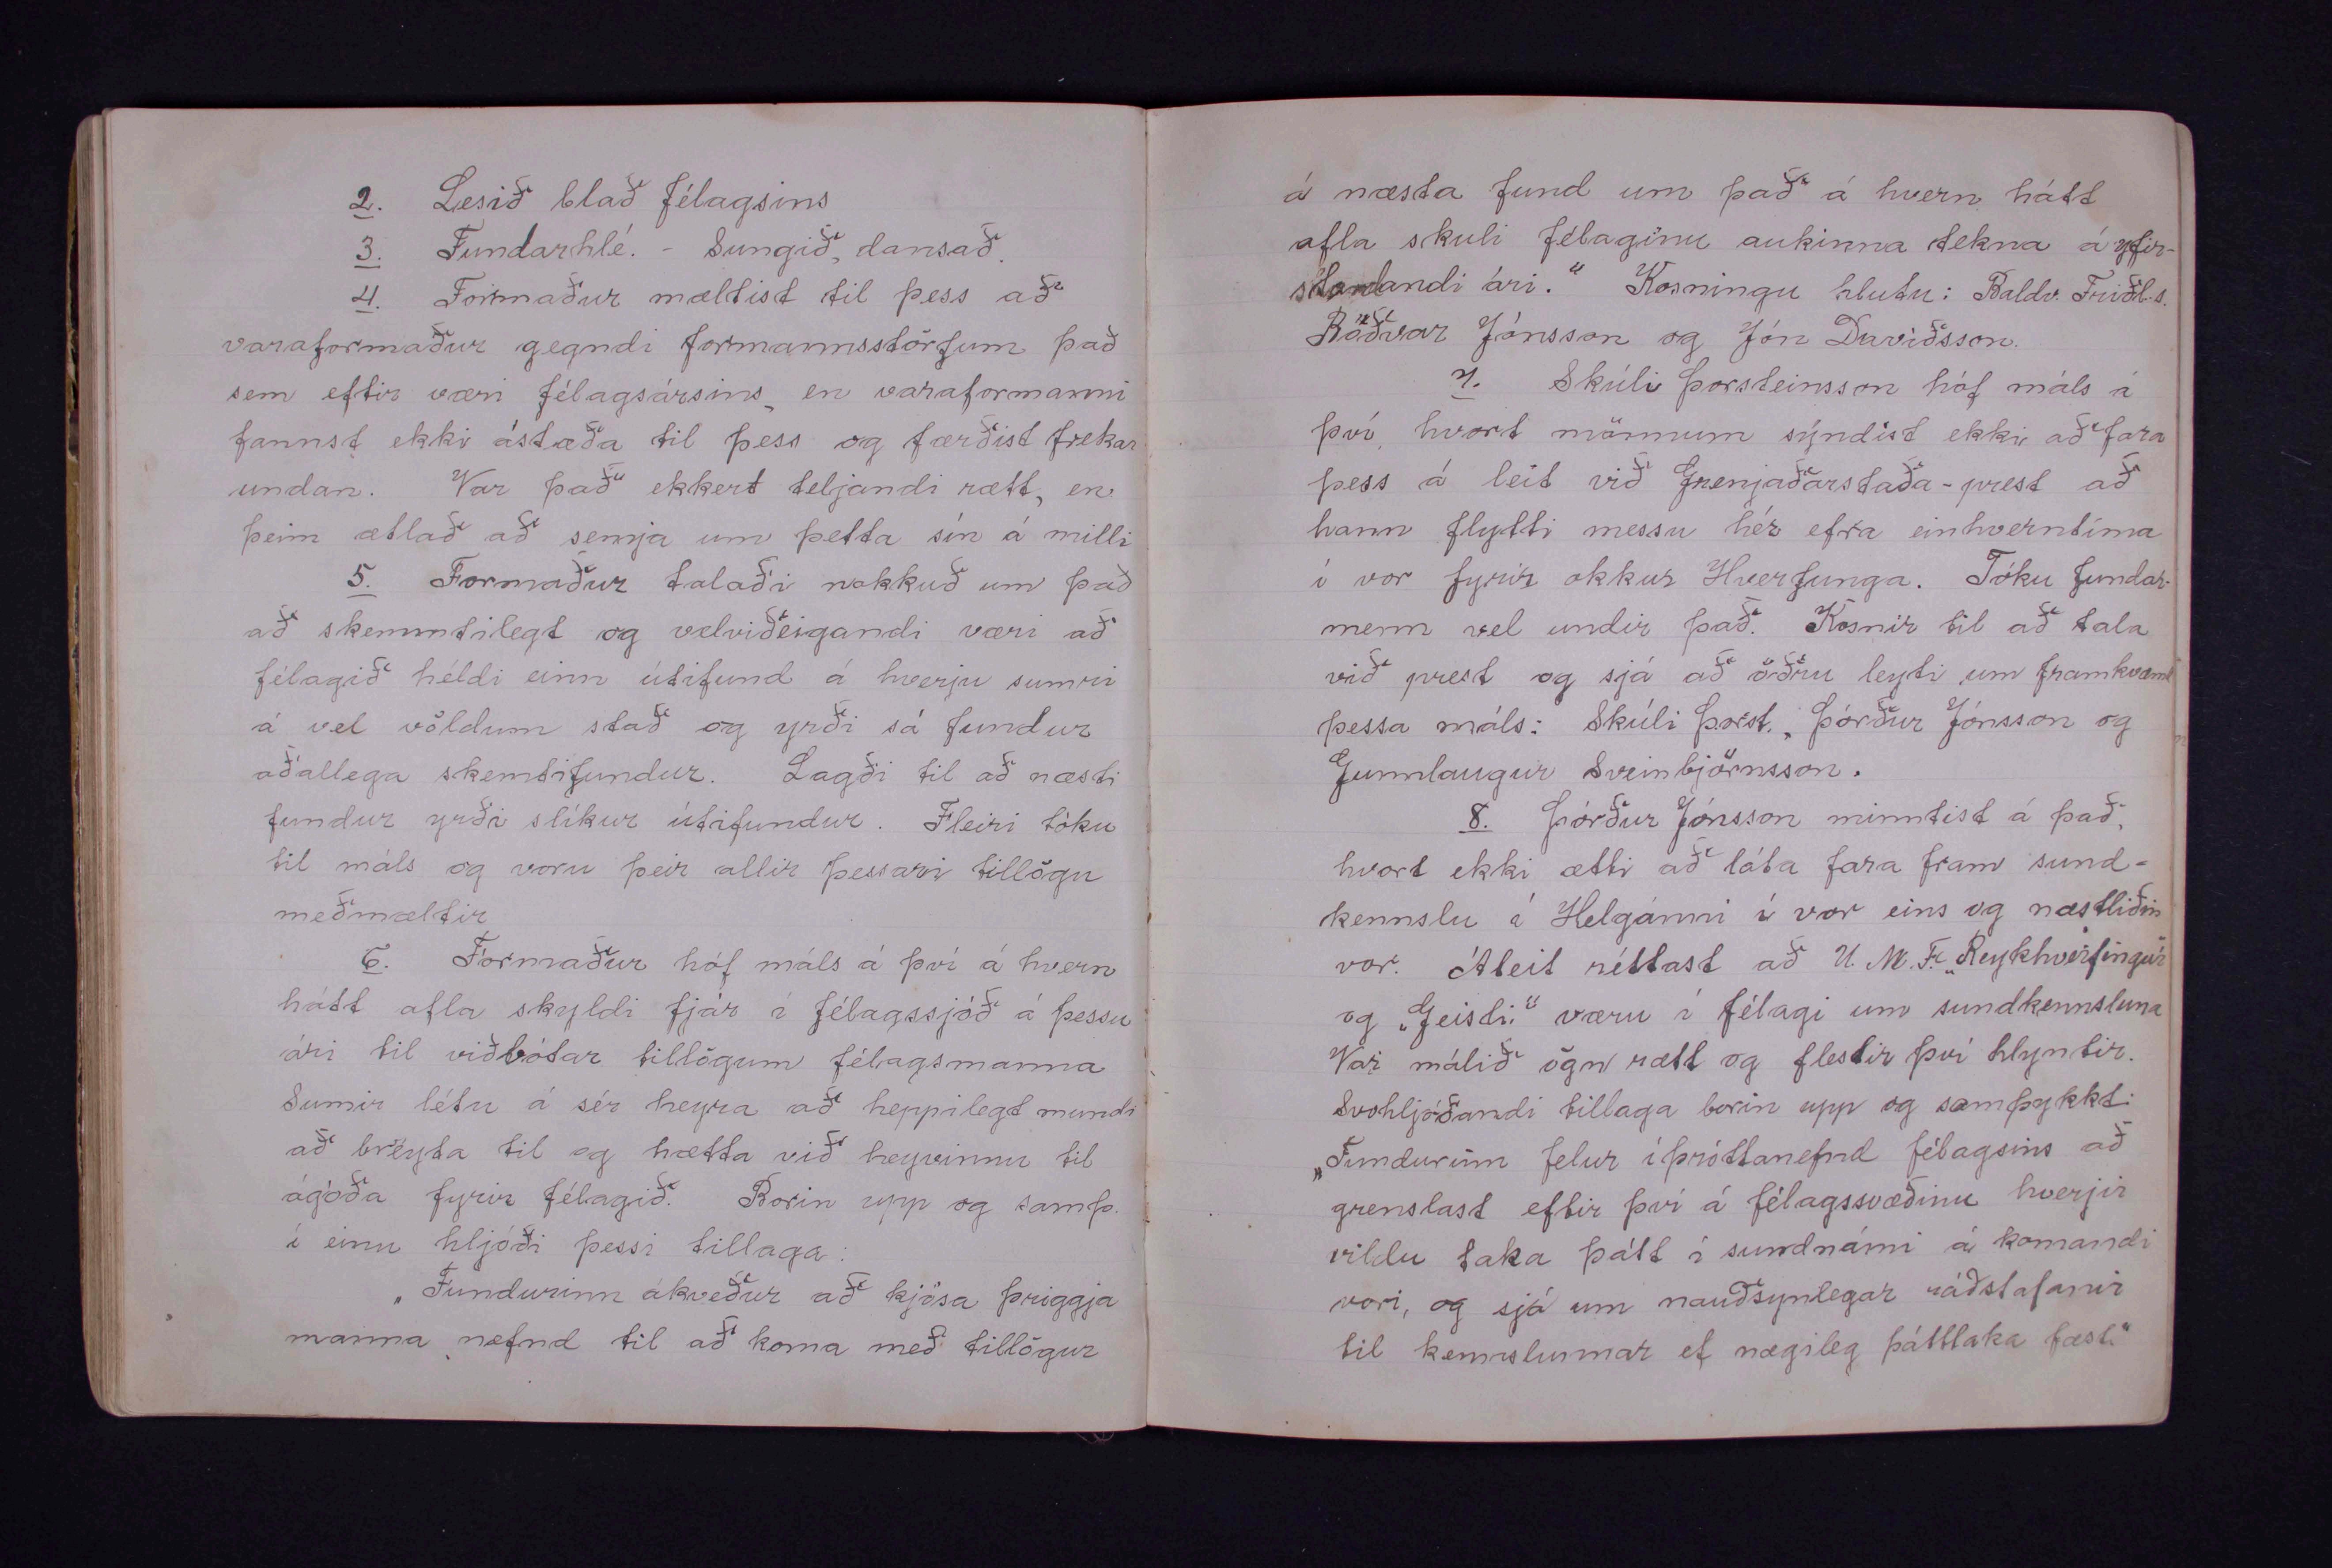 2. Lesið blað félagsins
3. Fundarhlé. - Sungið, dansað.
4. Formaður mæltist til þess að
varaformaður gegndi formannsstörfum það
sem eftir væri félagsársins, en varaformanni
fannst ekki ástæða til þess og færðist frekar
undan. Var það ekkert teljandi rætt, en
þeim ætlað að semja um þetta sín á milli
5. Formaður talaði nokkuð um það
að skemmtilegt og velviðeigandi væri að
félagið héldi einn útifund á hverju sumri
á vel völdum stað og yrði sá fundur
aðallega skemtifundur. Lagði til að næsti
fundur yrði slíkur útifundur. Fleiri tóku
til máls og voru þeir allir þessari tillögu
meðmæltir
6. Formaður hóf máls á því á hvern
hátt afla skyldi fjár í félagssjóð á þessu
ári til viðbótar tillögum félagsmanna
Sumir létu á sér heyra að heppilegt mundi
að breyta til og hætta við heyvinnu til
ágóða fyrir félagið. Borin upp og samþ.
í einu hljóði þessi tillaga:
„Fundurinn ákveður að kjósa þriggja
manna nefnd til að koma með tillögur
á næsta fund um það á hvern hátt
afla skuli félaginu aukinna tekna á yfir-
standandi ári.“ Kosningu hlutu: Baldv. Friðl.s.
Böðvar Jónsson og Jón Davíðsson.
7. Skúli Þorsteinsson hóf máls á
því, hvort mönnum sýndist ekki að fara
þess á leit við Grenjaðarstaða-prest að
hann flytti messu hér efra einhverntíma
í vor fyrir okkur Hverfunga. Tóku fundar-
menn vel undir það. Kosnir til að tala
við prest og sjá að öðru leyti um framkvæmd
þessa máls: Skúli Þorst., Þórður Jónsson og
Gunnlaugur Sveinbjörnsson.
8. Þórður Jónsson minntist á það,
hvort ekki ætti að láta fara fram sund-
kennslu í Helgánni í vor eins og næstliðin
vor. Áleit réttast að U. M. F. „Reykhverfingur
og „Geisli“ væru í félagi um sundkennsluna
Var málið ögn rætt og flestir því hlyntir.
Svohljóðandi tillaga borin upp og samþykkt:
„Fundurinn felur íþróttanefnd félagsins að
grenslast eftir því á félagssvæðinu hverjir
vildu taka þátt í sundnámi á komandi
vori, og sjá um nauðsynlegar ráðstafanir
til kennslunnar ef nægileg þátttaka fæst.“